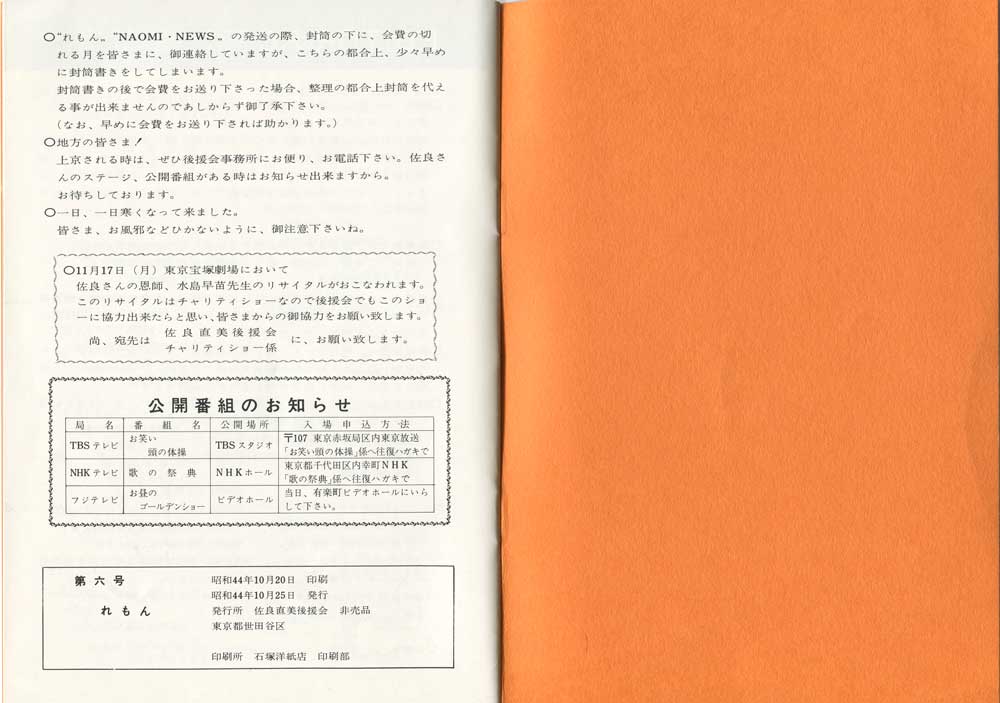 ○“れもん„“NAOMI・NEWS„の発送の際、封筒の下に、会費の切
れる月を皆さまに、御連絡していますが、こちらの都合上、少々早め
に封筒書きをしてしまいます。
封筒書きの後で会費をお送り下さった場合、整理の都合上封筒を代え
る事が出来ませんのであしからず御了承下さい。
(なお、早めに会費をお送り下されば助かります。)
○地方の皆さま!
上京される時は、ぜひ後援会事務所にお便り、お電話下さい。佐良さ
んのステージ、公開番組がある時はお知らせ出来ますから。
お待ちしております。
○一日、一日寒くなって来ました。
皆さま、お風邪などひかないように、御注意下さいね。
○11月17日(月)東京宝塚劇場において
佐良さんの恩師、水島早苗先生のリサイタルがおこなわれます。
このリサイタルはチャリティショーなので後援会でもこのショ
ーに協力出来たらと思い、皆さまからの御協力をお願い致します。
尚、宛先は 佐良直美後援会 に、お願い致します。
チャリティショー係
公開番組のお知らせ
局名 番組名 公開場所 入場申込方法
TBSテレビ お笑い 頭の体操 TBSスタジオ 〒107 東京赤坂局区内東京放送
「お笑い頭の体操」係へ往復ハガキで
NHKテレビ 歌の祭典 NHKホール 東京都千代田区内幸町NHK
「歌の祭典」係へ往復ハガキで
フジテレビ お昼の ゴールデンショー ビデオホール 当日、有楽町ビデオホールにいら
して下さい。
第六号 昭和44年10月20日 印刷
昭和44年10月25日 発行
れもん 発行所 佐良直美後援会 非売品
東京都世田谷区
印刷所 石塚洋紙店 印刷部